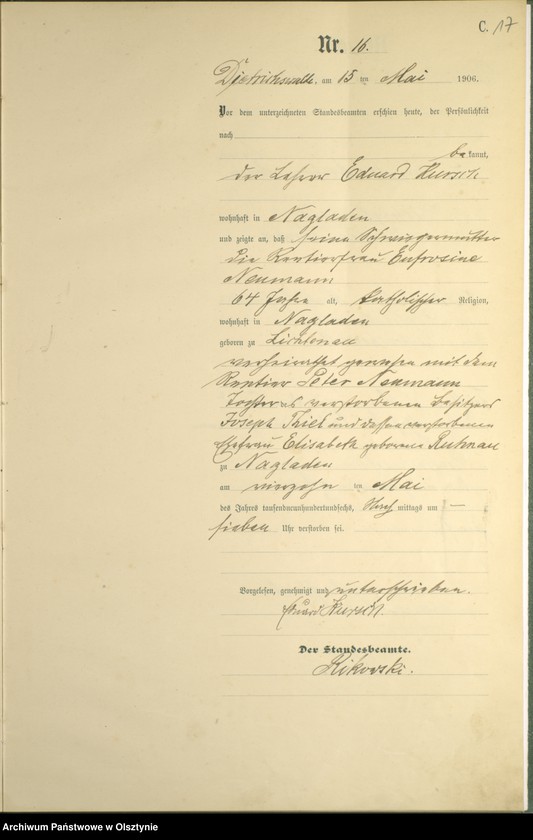 C. 17
Nr. 16.
Dietrichswalde, am 15 ten Mai 1906.
Vor dem unterzeichneten Standesbeamten erschien heute, der Persönlichkeit
nach
be kannt,
der Lehrer Eduard Huersch
wohnhaft in Nagladen
und zeigte an, daß seine Schwiegermutter
die Rentierfrau Eufrosine
Neumann
64 Jahre alt, katholischer Religion,
wohnhaft in Nagladen
geboren zu Lichtenau
verheirathet gewesen mit dem
Rentier Peter Neumann
Tochter des verstorbenen Besitzers
Joseph Thiel und dessen verstorbenen
Ehefrau Elisabeth geborene Ruhnau
zu Nagladen
am vierzehn ten Mai
des Jahres tausendneunhundertundsechs, Nach mittags um —
sieben Uhr verstorben sei.
Vorgelesen, genehmigt und unterschrieben.
Eduard Huersch.
Der Standesbeamte.
Rikowski.
Archiwum Państwowe w Olsztynie